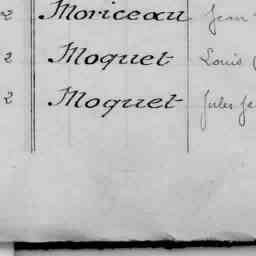 2 Moriceau Jean
2 Moquet Louis
2 Moquet Jules